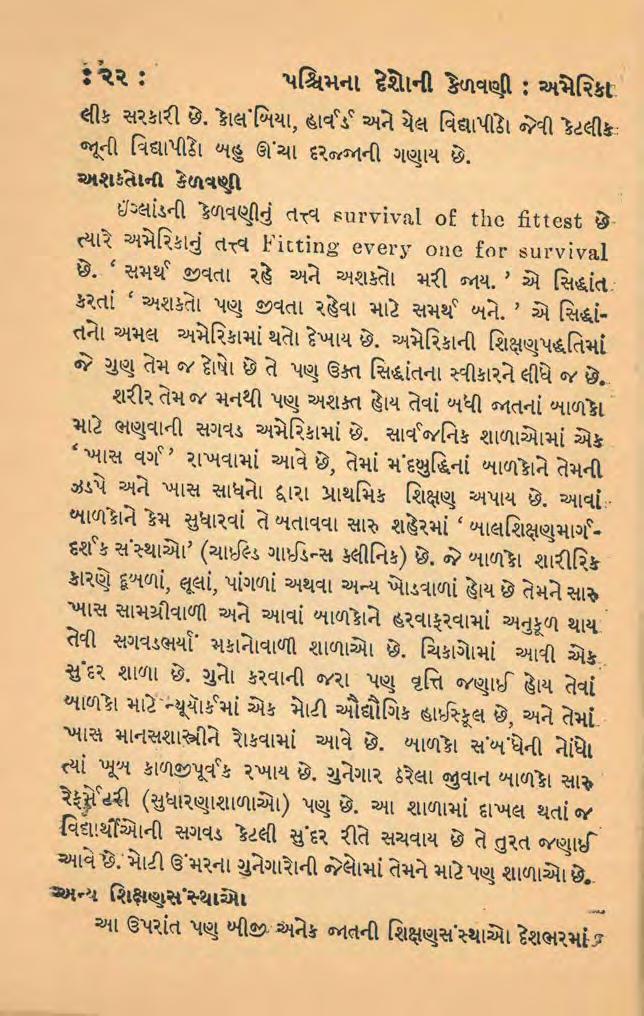 : ૨૨ :
પશ્ચિમના દેશોની કેળવણી : અમેરિકા
લીક સરકારી છે. કોલંબિયા, હાર્વર્ડ અને યેલ વિદ્યાપીઠો જેવી કેટલીક
જૂની વિદ્યાપીઠો બહુ ઊંચા દરજ્જાની ગણાય છે.
અશક્તોની કેળવણી
ઈંગ્લાંડની કેળવણીનું તત્ત્વ survival of the fittest છે
ત્યારે અમેરિકાનું તત્ત્વ Fitting every one for survival
છે. ‘ સમર્થ જીવતા રહે અને અશક્તો મરી જાય. ’ એ સિદ્ધાંત
કરતાં ‘ અશક્તો પણ જીવતા રહેવા માટે સમર્થ બને. ’ એ સિદ્ધાં-
તનો અમલ અમેરિકામાં થતો દેખાય છે. અમેરિકાની શિક્ષણપદ્ધતિમાં
જે ગુણ તેમ જ દોષો છે તે પણ ઉક્ત સિદ્ધાંતના સ્વીકારને લીધે જ છે.
શરીર તેમ જ મનથી પણ અશક્ત હોય તેવાં બધી જાતનાં બાળકો
માટે ભણવાની સગવડ અમેરિકામાં છે. સાર્વજનિક શાળાઓમાં એક
‘ ખાસ વર્ગ ’ રાખવામાં આવે છે, તેમાં મંદબુદ્ધિનાં બાળકોને તેમની
ઝડપે અને ખાસ સાધનો દ્વારા પ્રાથમિક શિક્ષણ અપાય છે. આવાં
બાળકોને કેમ સુધારવાં તે બતાવવા સારુ શહેરમાં ‘ બાલશિક્ષણમાર્ગ-
દર્શક સંસ્થાઓ’ (ચાઈલ્ડ ગાઈડન્સ ક્લીનિક) છે. જે બાળકો શારીરિક
કારણે દૂબળાં, લૂલાં, પાંગળાં અથવા અન્ય ખોડવાળાં હોય છે તેમને સારુ
ખાસ સામગ્રીવાળી અને આવાં બાળકોને હરવાફરવામાં અનુકૂળ થાય
તેવી સગવડભર્યાં મકાનોવાળી શાળાઓ છે. ચિકાગોમાં આવી એક
સુંદર શાળા છે. ગુનો કરવાની જરા પણ વૃત્તિ જણાઈ હોય તેવાં
બાળકો માટે ન્યૂયૉર્કમાં એક મોટી ઔદ્યૌગિક હાઈસ્કૂલ છે, અને તેમાં
ખાસ માનસશાસ્ત્રીને રોકવામાં આવે છે. બાળકો સંબંધેની નોંધો
ત્યાં ખૂબ કાળજીપૂર્વક રખાય છે. ગુનેગાર ઠરેલા જુવાન બાળકો સારુ
રેફર્મેટરી (સુધારણાશાળાઓ) પણ છે. આ શાળામાં દાખલ થતાં જ
વિદ્યાર્થીઓની સગવડ કેટલી સુંદર રીતે સચવાય છે તે તુરત જણાઈ
આવે છે. મોટી ઉંમરના ગુનેગારોની જેલોમાં તેમને માટે પણ શાળાઓ છે.
અન્ય શિક્ષણસંસ્થાઓ
આ ઉપરાંત પણ બીજી અનેક જાતની શિક્ષણસંસ્થાઓ દેશભરમાં